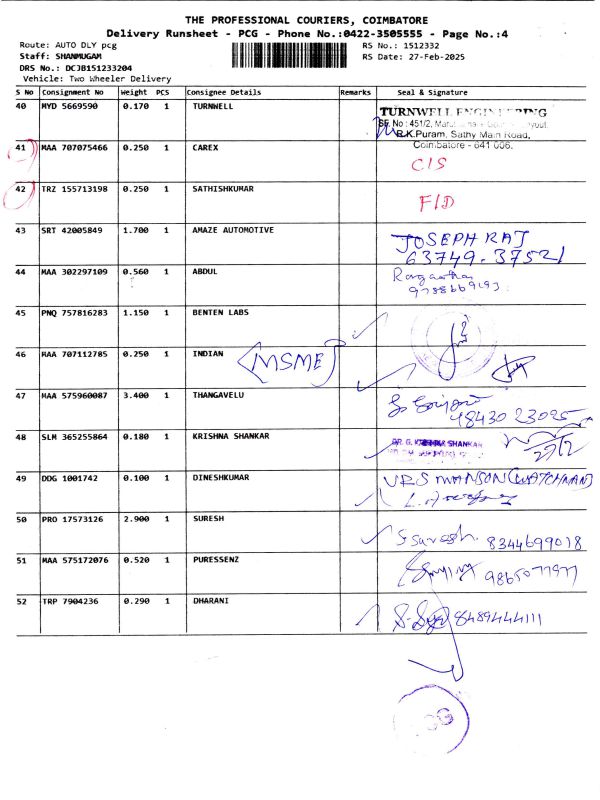 THE PROFESSIONAL COURIERS, COIMBATORE
Delivery Runsheet - PCG - Phone No.:0422-3505555 - Page No.:4
Route: AUTO DLY pcg
RS No.: 1512332
Staff: SHANMUGAM
RS Date: 27-Feb-2025
DRS No.: DCJB151233204
Vehicle: Two Wheeler Delivery
S No Consignment No Weight PCS Consignee Details Remarks Seal & Signature
40 MYD 5669590 0.170 1 TURNWELL
TURNWELL ENGINEERING
SF. No : 451/2,
R.K.Puram, Sathy Main Road,
Coimbatore - 641 006.
41 MAA 707075466 0.250 1 CAREX
C/S
42 TRZ 155713198 0.250 1 SATHISHKUMAR
F/D
43 SRT 42005849 1.700 1 AMAZE AUTOMOTIVE
JOSEPH RAJ
63749-37521
44 MAA 302297109 0.560 1 ABDUL
9788669193
45 PNQ 757816283 1.150 1 BENTEN LABS
46 MAA 707112785 0.250 1 INDIAN (MSME)
47 MAA 575960087 3.400 1 THANGAVELU
98430 23025
48 SLM 365255864 0.180 1 KRISHNA SHANKAR
DR. G. KRISHNA SHANKAR
27/2
49 DDG 1001742 0.100 1 DINESHKUMAR
VRS MANSON (WATCHMAN)
50 PRO 17573126 2.900 1 SURESH
S. Suresh 8344699018
51 MAA 575172076 0.520 1 PURESSENZ
9865077977
52 TRP 7904236 0.290 1 DHARANI
8489444111
PCG